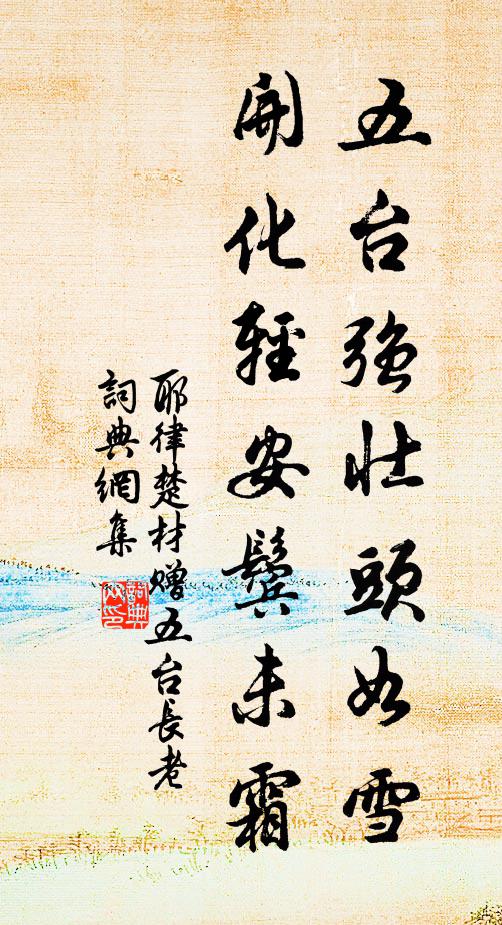 五台强壮頭如雪
開化輕安鬓未霜
耶律楚材贈五台長老
詞典網集